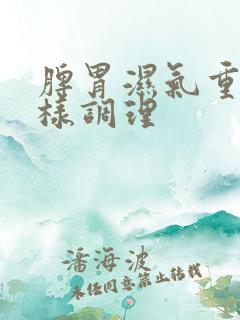 脾胃濕氣重
樣調理
潘海波
未經同意禁止轉載